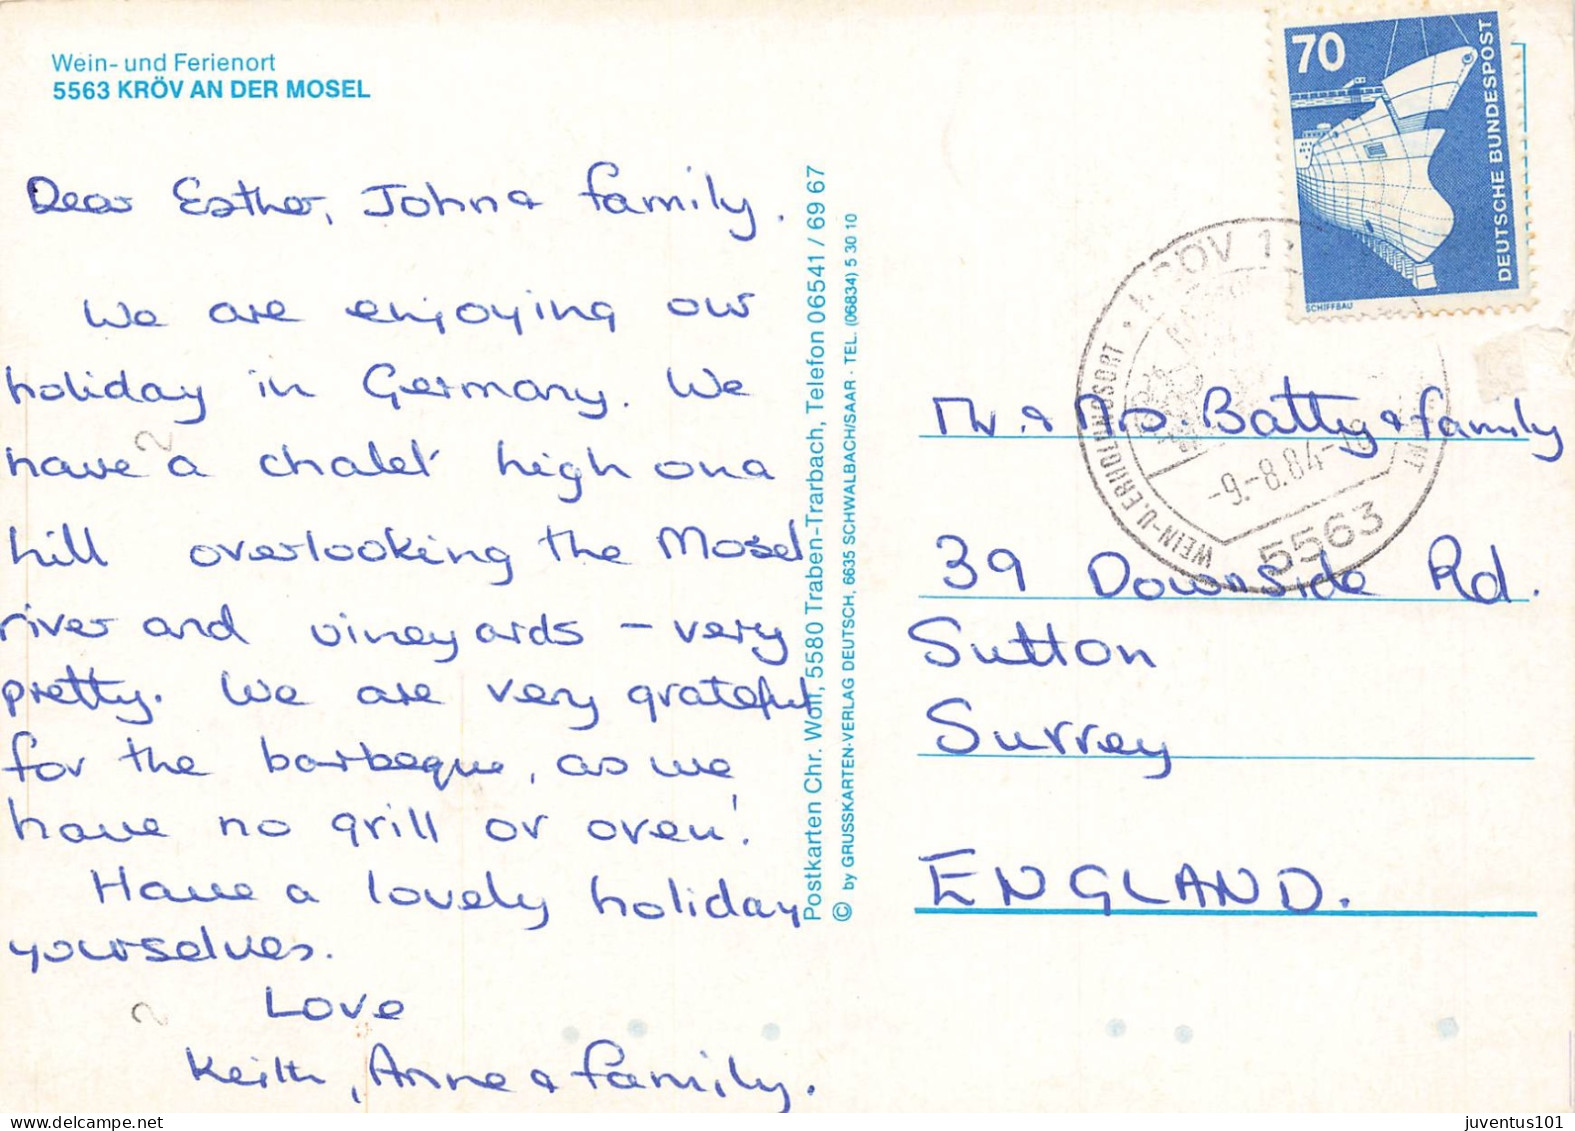 Wein- und Ferienort
5563 KRÖV AN DER MOSEL
Dear Esther, John & family.
We are enjoying our
holiday in Germany. We
have a chalet high on a
hill overlooking the Mosel
river and vineyards – very
pretty. We are very grateful
for the barbeque, as we
have no grill or oven!
Have a lovely holiday
yourselves.
Love
Keith, Anne & family.
Postkarten Chr. Wolf, 5580 Traben-Trarbach, Telefon 06541 / 69 67
© by GRUSSKARTEN-VERLAG DEUTSCH, 6635 SCHWALBACH/SAAR · TEL. (06834) 5 30 10
70
DEUTSCHE BUNDESPOST
SCHIFFBAU
KRÖV 1
WEIN-U.ERHOLUNGSORT
-9.-8.84-18
5563
Mr. & Mrs. Batty & family
39 Downside Rd.
Sutton
Surrey
ENGLAND.
juventus101